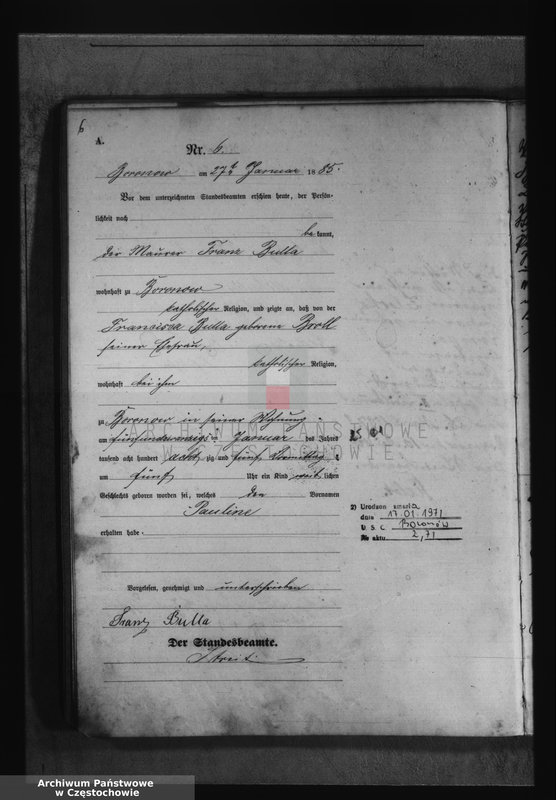 6
A.
Nr. 6.
Boronow am 27ten Januar 1885.
Vor dem unterzeichneten Standesbeamten erschien heute, der Persön-
lichkeit nach
bekannt,
der Maurer Franz Bulla
wohnhaft zu Boronow
katholischer Religion, und zeigte an, daß von der
Francisca Bulla geborene
seiner Ehefrau,
katholischer Religion,
wohnhaft bei ihm
zu Boronow in seiner Wohnung
am fünfundzwanzigsten Januar des Jahres
tausend acht hundert achtzig und fünf Vormittags
um fünf Uhr ein Kind weiblichen
Geschlechts geboren worden sei, welches den Vornamen
Pauline
erhalten habe.
Vorgelesen, genehmigt und unterschrieben
Franz Bulla
Der Standesbeamte.
2) Urodzon zmarła
dnia 17.01.1971
U.S.C. Boronów
Nr aktu 2/71
ARCHIWUM PAŃSTWOWE
W CZĘSTOCHOWIE
Archiwum Państwowe
w Częstochowie